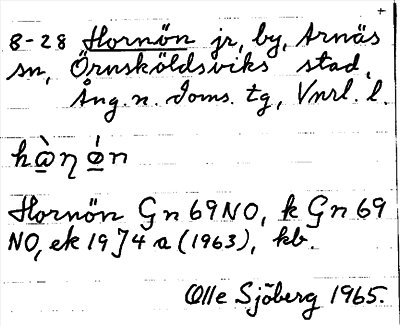 +
8-28 Hornön jr, by, Arnäs
sn, Örnsköldsviks stad,
Ång. n. Doms. tg, Vnrl. l.
Hornön Gn 69 NO, k Gn 69
NO, ek 19 J 4 a (1963), kb.
Olle Sjöberg 1965.